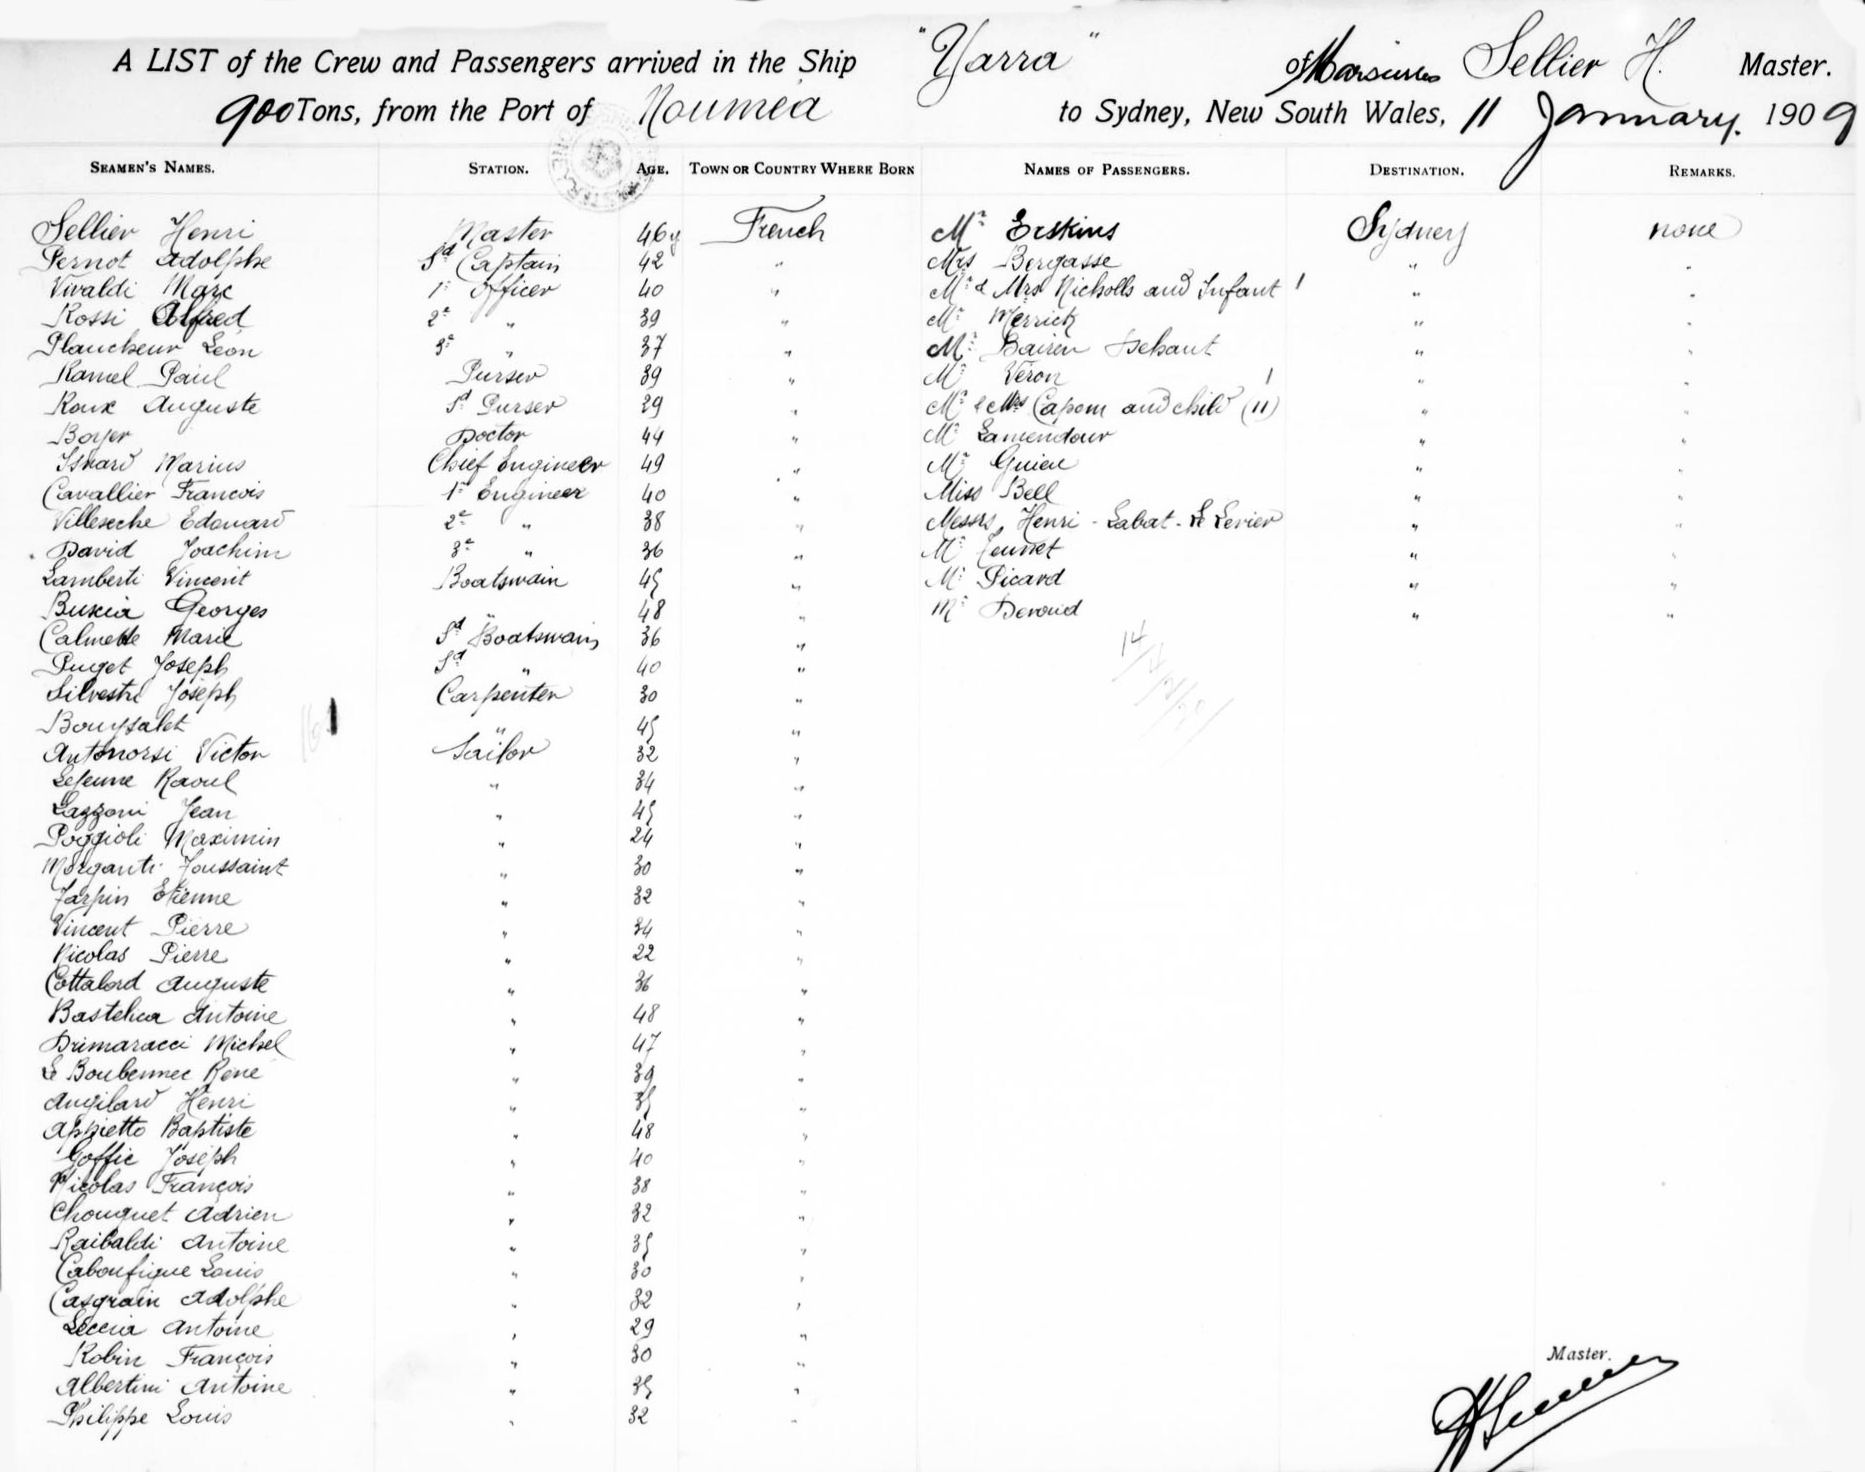 A LIST of the Crew and Passengers arrived in the Ship "Yarra" of Marseilles Sellier H. Master.
900 Tons, from the Port of Nouméa to Sydney, New South Wales, 11 January. 1909
SEAMEN'S NAMES. STATION. AGE. TOWN OR COUNTRY WHERE BORN NAMES OF PASSENGERS. DESTINATION. REMARKS.
Sellier Henri Master 46y French Mr Erskins Sydney none
Pernot Adolphe Sd Captain 42 " Mrs Bergasse " "
Vivaldi Marc 1r Officer 40 " Mr & Mrs Nicholls and Infant 1 " "
Rossi Alfred 2e " 39 " Mr Merrick " "
Plancheur Léon 3e " 37 " Mr " "
Ramel Paul Purser 39 " Mr Véron 1 " "
Roux Auguste Sd Purser 29 " Mr & Mrs Capom and child (11) " "
Boyer Doctor 44 " Mr Lamendour " "
Isnard Marius Chief Engineer 49 " Mr Guieu " "
Cavallier François 1r Engineer 40 " Miss Bell " "
Villeseche Edouard 2e " 38 " Messrs Henri - Labat - Le Levier " "
David Joachim 3e " 36 " Mr " "
Lamberti Vincent Boatswain 45 " Mr Picard " "
Georges " 48 " Mr Devoud " "
Calmette Marie Sd Boatswain 36 "
Puget Joseph Sd " 40 "
Silvestri Joseph Carpenter 30 "
Boussalet " 45 "
Antonorsi Victor Sailor 32 "
Lejeune Raoul " 34 "
Lazzoni Jean " 45 "
Poggioli Maximin " 24 "
Morganti Toussaint " 30 "
Jarpin Etienne " 32 "
Vincent Pierre " 34 "
Nicolas Pierre " 22 "
Cottalord Auguste " 36 "
Bastelica Antoine " 48 "
Drimaracci Michel " 47 "
Le Boubennec René " 39 "
Augilard Henri " 35 "
Appietto Baptiste " 48 "
Goffic Joseph " 40 "
Nicolas François " 38 "
Chouquet Adrien " 32 "
Raibaldi Antoine " 35 "
Caboufigue Louis " 30 "
Casgrain Adolphe " 32 "
Leccia Antoine " 29 "
Robin François " 30 "
Albertini Antoine " 35 "
Philippe Louis " 32 "
Master.